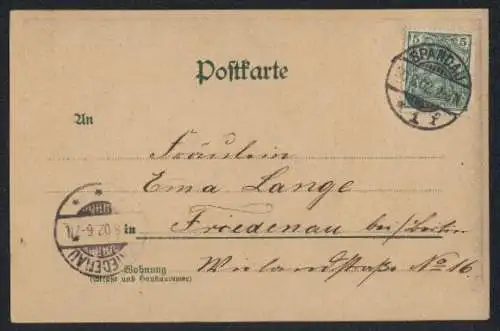 5 5
Postkarte
SPANDAU
.02.
* 1 f
An
Fräulein
Ema Lange
in Friedenau bei Berlin
.02.6-7N.
FRIEDENAU
Wielandstraße No 16.
Wohnung
(Straße und Hausnummer)